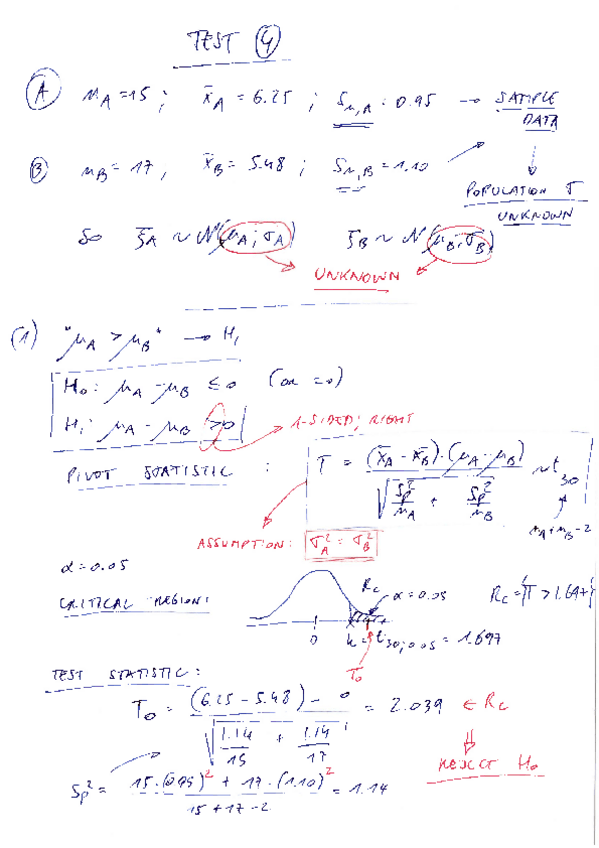 TEST 4
A n_A = 15 ; x̄_A = 6.25 ; S_{n,A} = 0.95 → SAMPLE DATA
B n_B = 17 , x̄_B = 5.48 ; S_{n,B} = 1.10
POPULATION σ UNKNOWN
So ξ_A ~ N(μ_A ; σ_A) ξ_B ~ N(μ_B ; σ_B)
UNKNOWN
(1) "μ_A > μ_B" → H_1
H_0: μ_A - μ_B ≤ 0 (or = 0)
H_1: μ_A - μ_B > 0
1-SIDED; RIGHT
PIVOT STATISTIC : T = (x̄_A - x̄_B) - (μ_A - μ_B) / √(Sp²/n_A + Sp²/n_B) ~ t_30
n_A + n_B - 2
ASSUMPTION: σ²_A = σ²_B
α = 0.05
CRITICAL REGION:
R_C α = 0.05 R_C = {T > 1.697}
0 k = t_{30;0.05} = 1.697
T_0
TEST STATISTIC:
T_0 = (6.25 - 5.48) - 0 / √(1.14/15 + 1.14/17) = 2.039 ∈ R_C
⇒ REJECT H_0
Sp² = 15·(0.95)² + 17·(1.10)² / 15 + 17 - 2 = 1.14